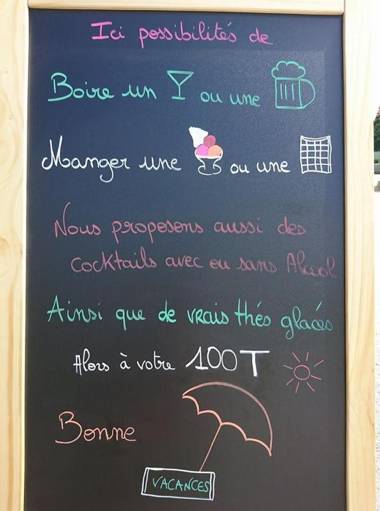 Ici possibilités de
Boire un ou une
Manger une ou une
Nous proposons aussi des
cocktails avec ou sans Alcool
Ainsi que de vrais thés glacés
Alors à votre 100T
Bonne
VACANCES